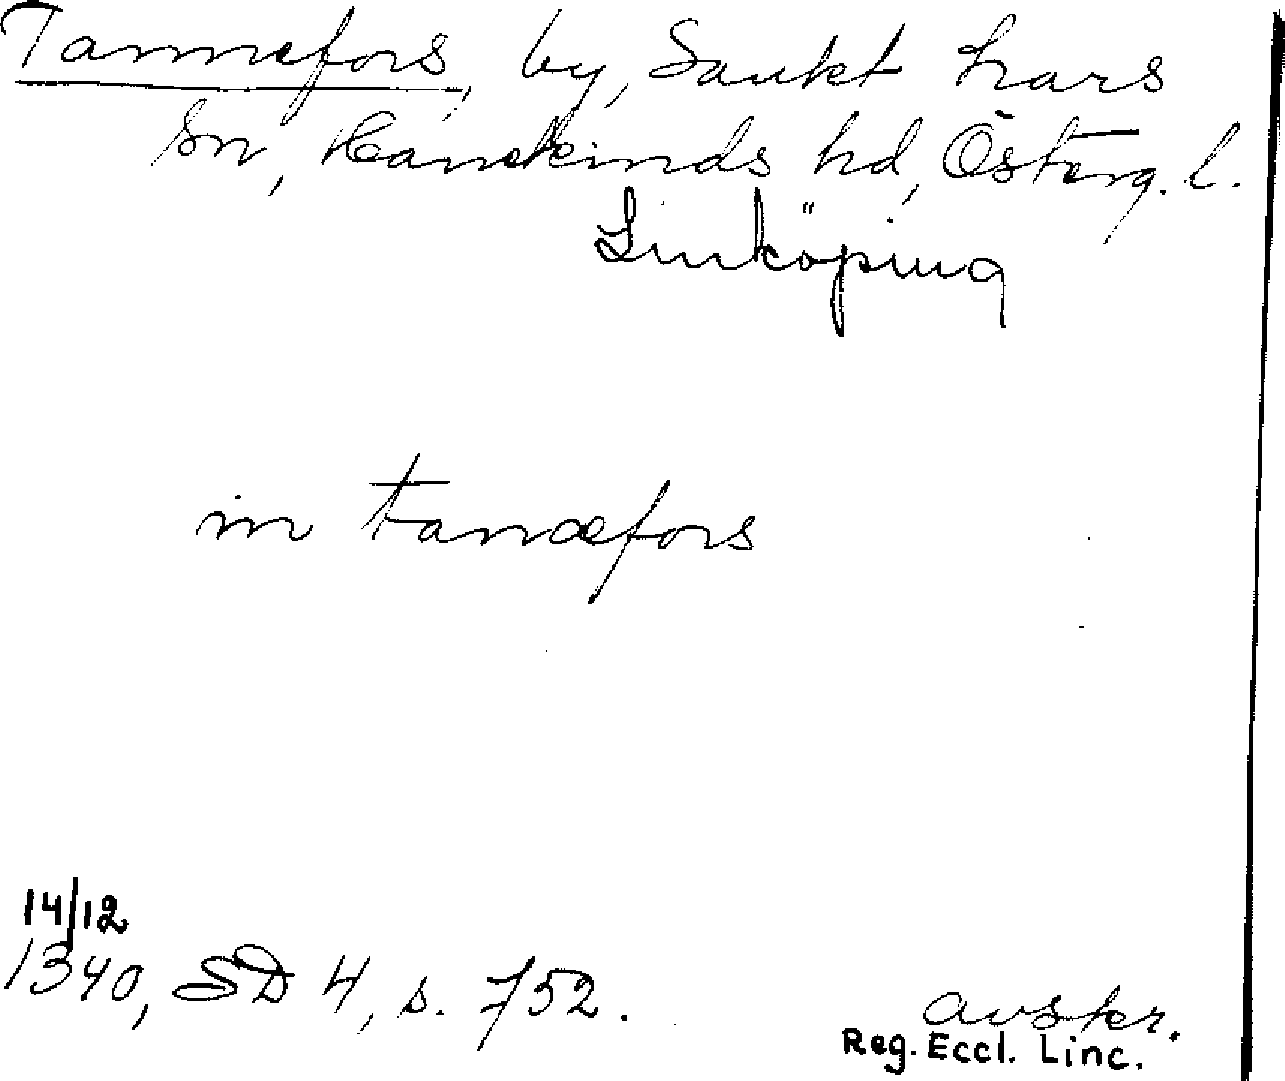 Tannefors, by, Sankt Lars
sn, Hanekinds hd, Österg. l.
Linköping
in tanæfors
14/12
1340, SD 4, s. 752.
avskr.
Reg. Eccl. Linc.